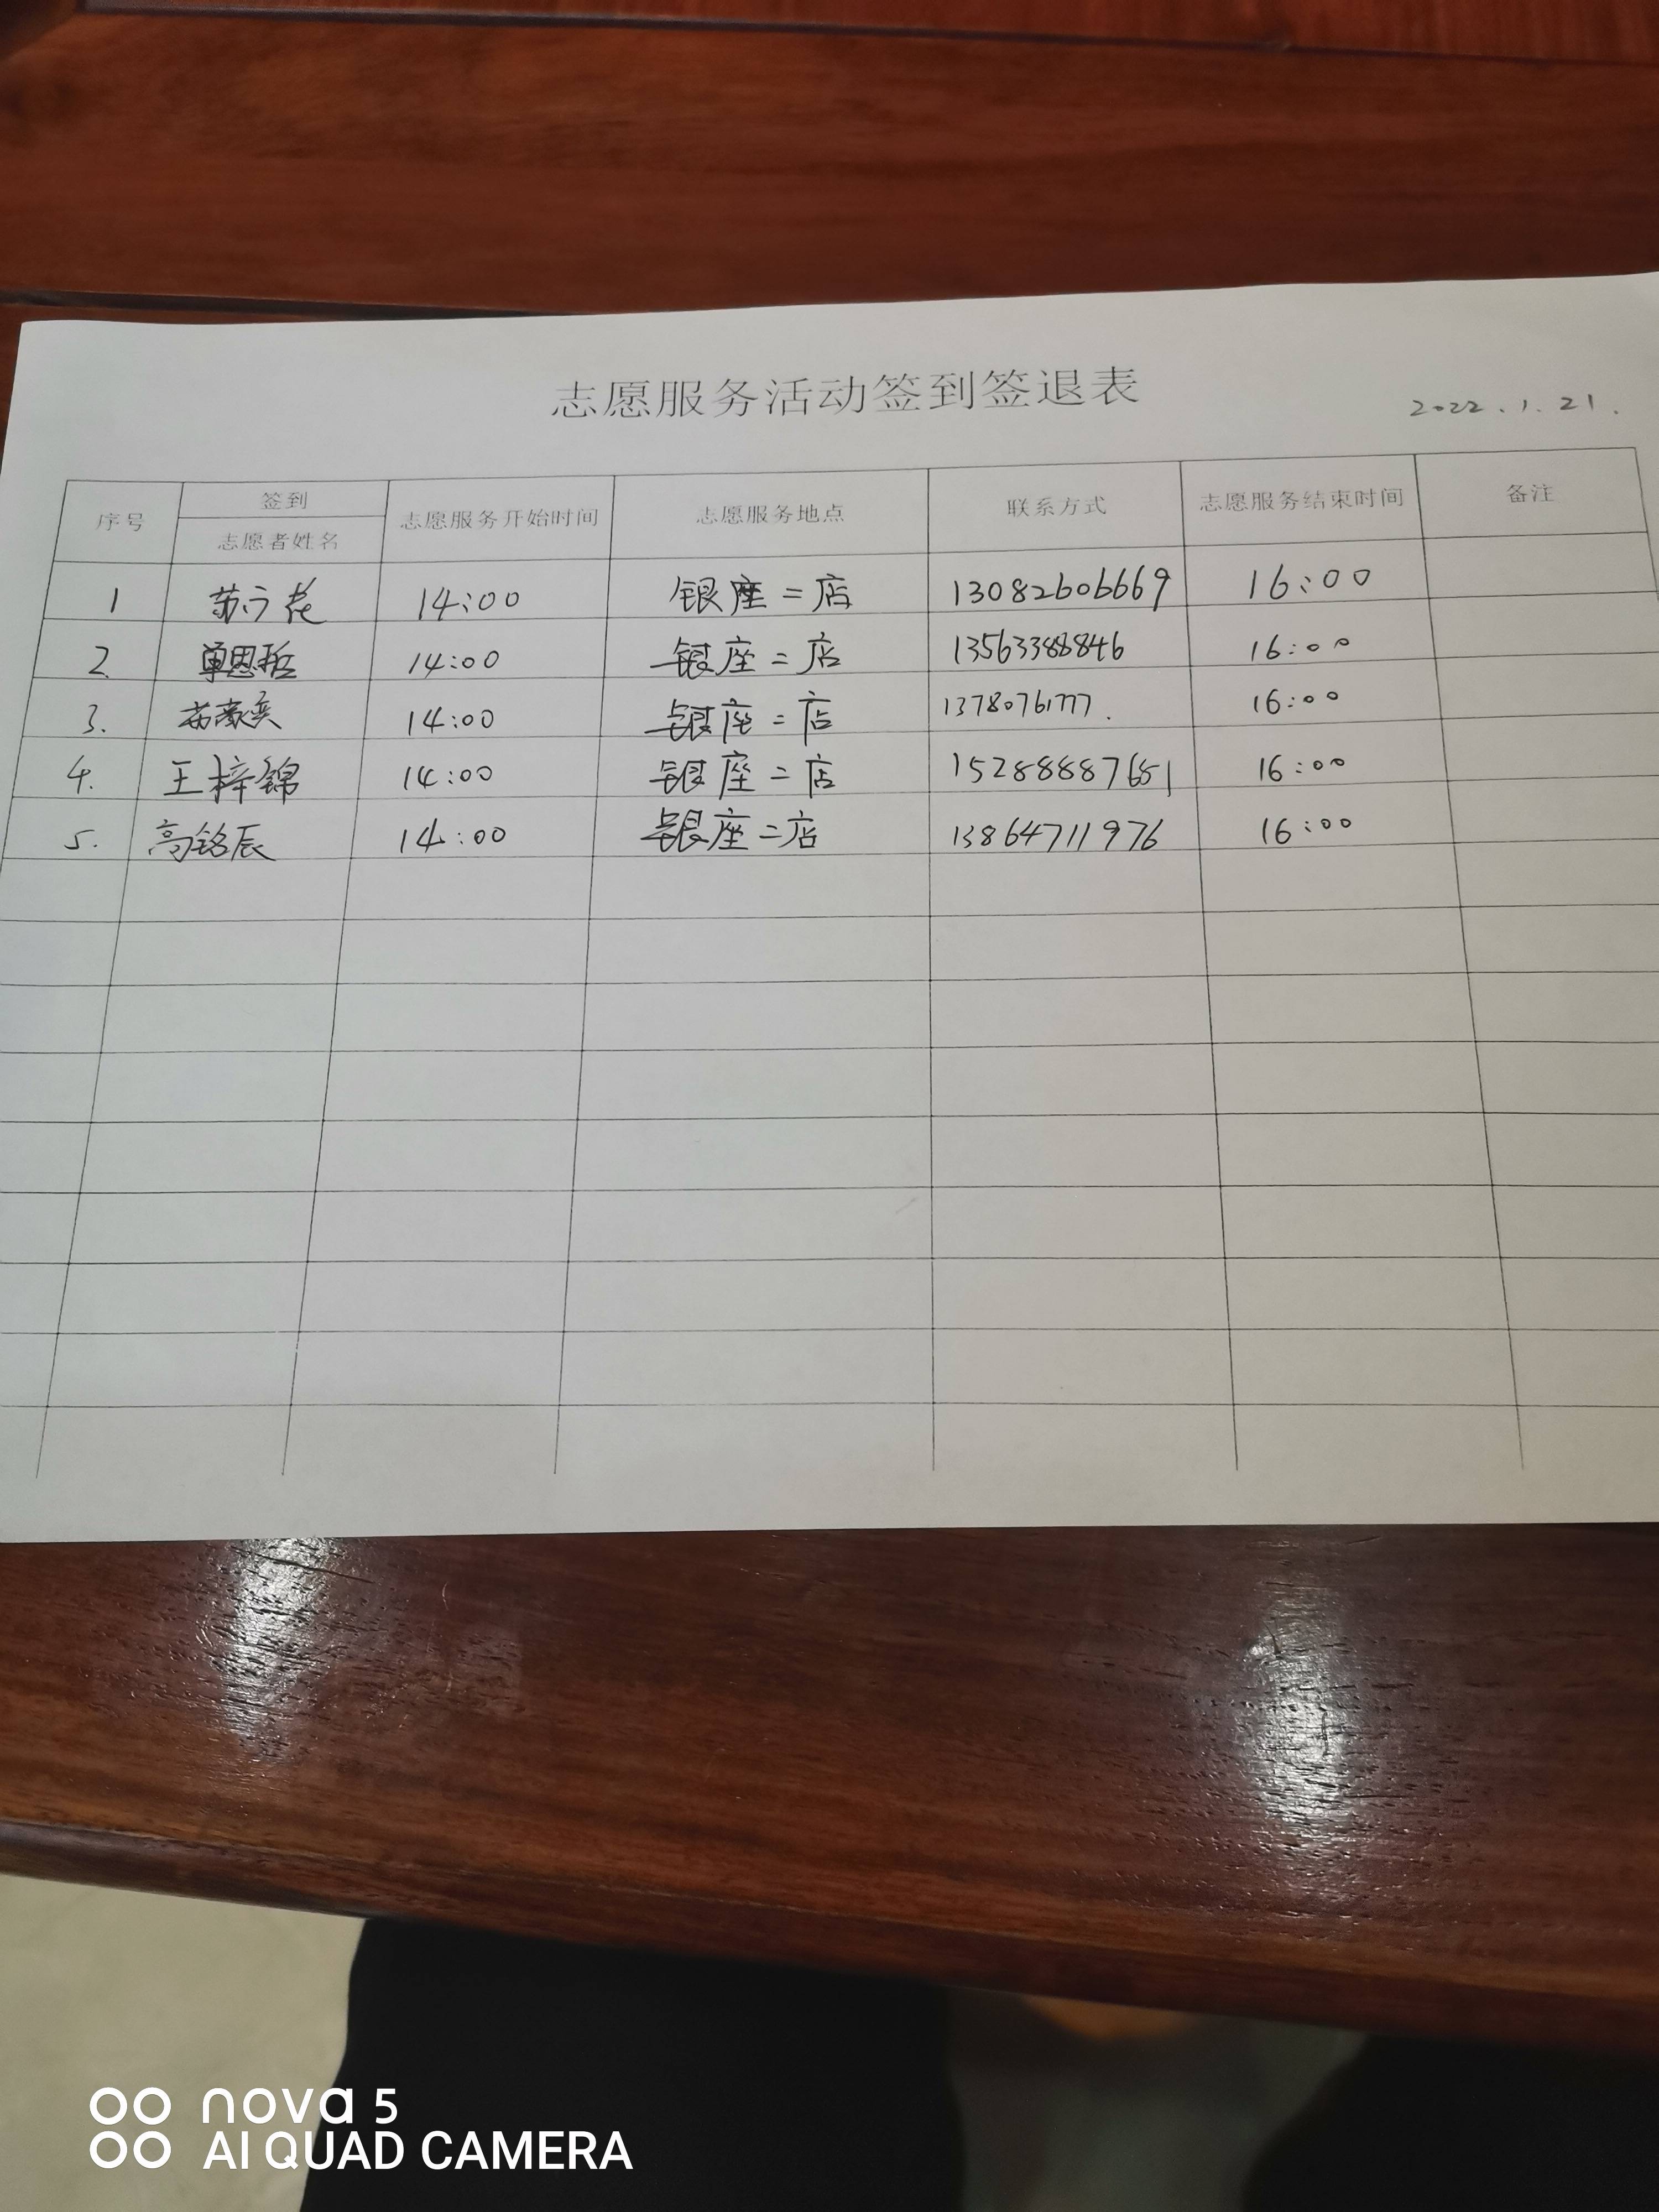 志愿服务活动签到签退表
2022.1.21.
序号 签到 志愿服务开始时间 志愿服务地点 联系方式 志愿服务结束时间 备注
志愿者姓名
1 14:00 银座二店 13082606669 16:00
2. 单思拓 14:00 银座二店 13563388846 16:00
3. 苗豪奕 14:00 银座二店 13780761777. 16:00
4. 王梓锦 14:00 银座二店 15288887651 16:00
5. 高铭辰 14:00 银座二店 13864711976 16:00
nova 5
AI QUAD CAMERA